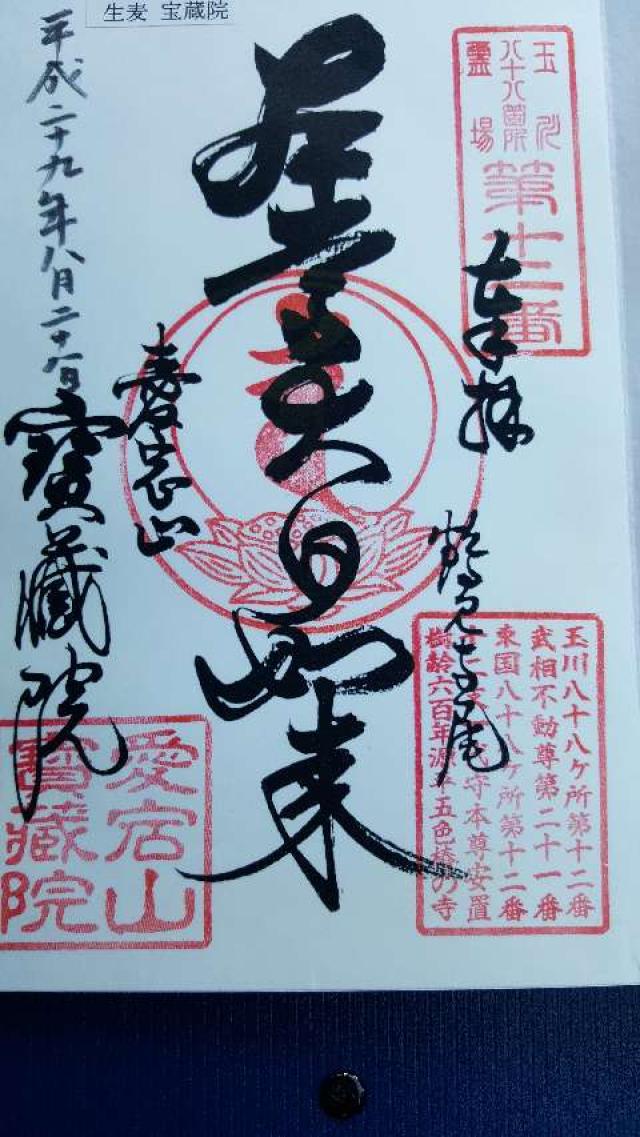 生麦 宝蔵院
玉川
八十八箇所
霊場
第十二番
奉拝
大日如来
平成二十九年八月二十日
寶藏院
愛宕山
寶藏院
玉川八十八ケ所第十二番
武相不動尊第二十一番
東国八十八ケ所第十二番
守本尊安置
樹齢六百年源平五色椿の寺